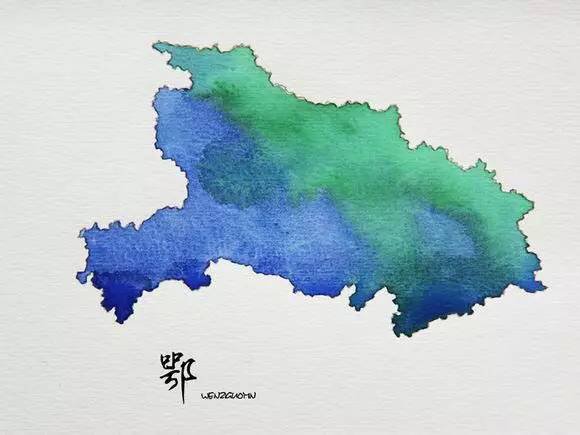 鄂
WENZGUOMN